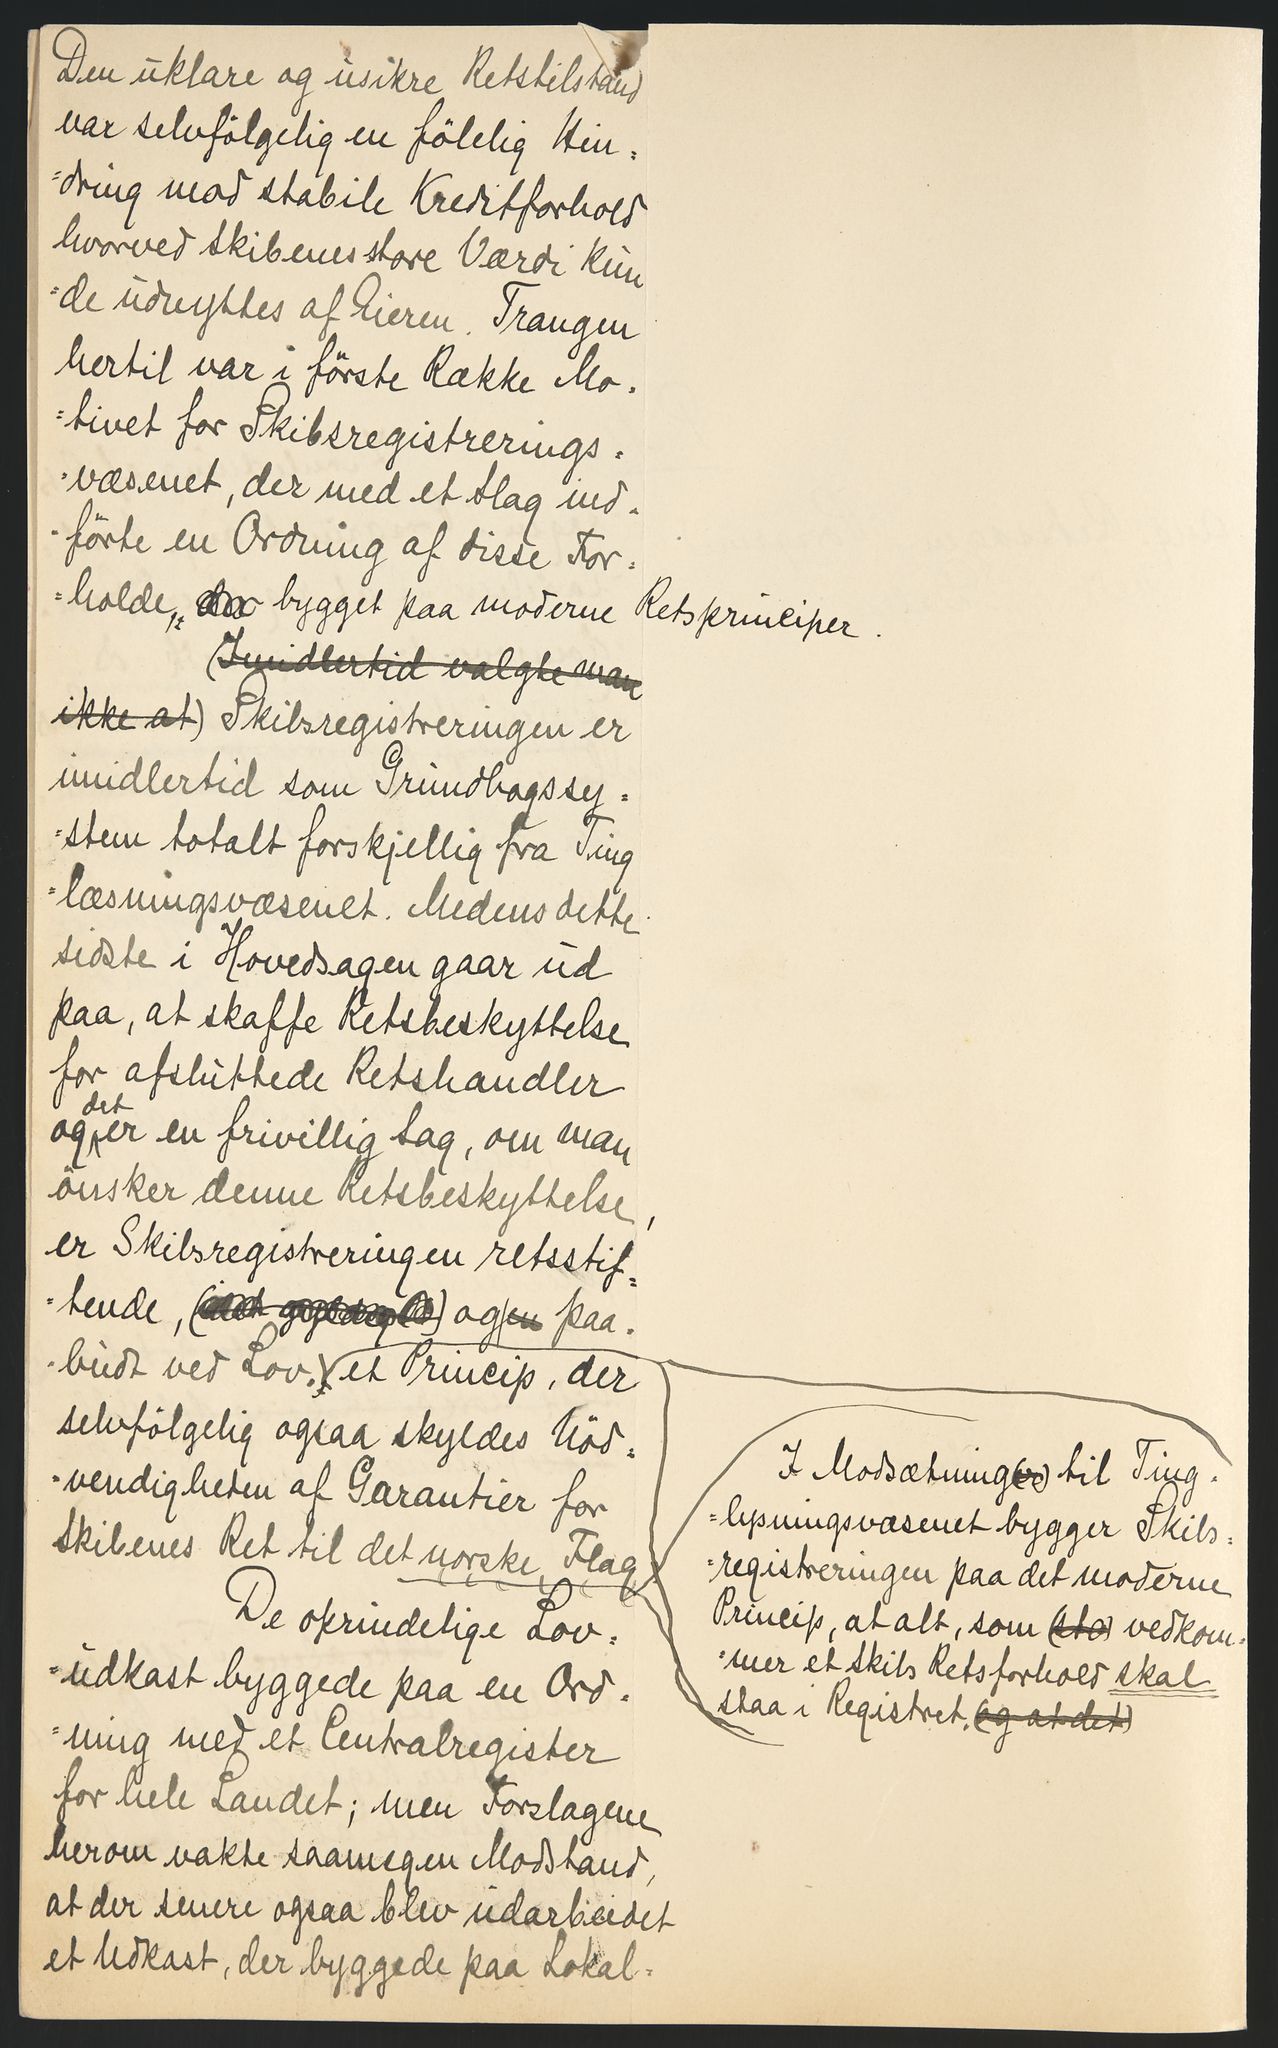 Den uklare og usikre Retstilstand
var selvfölgelig en fölelig Hin=
=dring mod stabile Kreditforhold
hvorved Skibenes store Værdi kun
=de udnyttes af Eieren. Trangen
hertil var i förste Række Mo=
=tivet for Skibsregistrerings=
=væsenet, der med et Slag ind=
=förte en Ordning af disse For=
=holde, der bygget paa moderne Retsprinciper.
(Imidlertid valgte man
ikke at) Skibsregistreringen er
imidlertid som Grundbogssy=
=stem totalt forskjellig fra Ting
=læsningsvæsenet. Medens dette
sidste i Hovedsagen gaar ud
paa, at skaffe Retsbeskyttelse
for afsluttede Retshandler
og det er en frivillig Sag, om man
önsker denne Retsbeskyttelse,
er Skibsregistreringen retsstif=
=tende, og en paa=
=budt ved Lov, et Princip, der
selvfölgelig ogsaa skyldes Nöd=
=vendigheten af Garantier for
Skibenes Ret til det norske Flag
De oprindelige Lov=
=udkast byggede paa en Ord=
=ning med et Centralregister
for hele Landet; men Forslagene
herom vakte saamegen Modstand,
at der senere ogsaa blev udarbeidet
et Udkast, der byggede paa Lokal=
I Modsætning(er) til Ting=
=lysningsvæsenet bygger Skibs=
=registreringen paa det moderne
Princip, at alt, som (sta) vedkom=
=mer et Skibs Retsforhold skal
staa i Registret. (og at det)